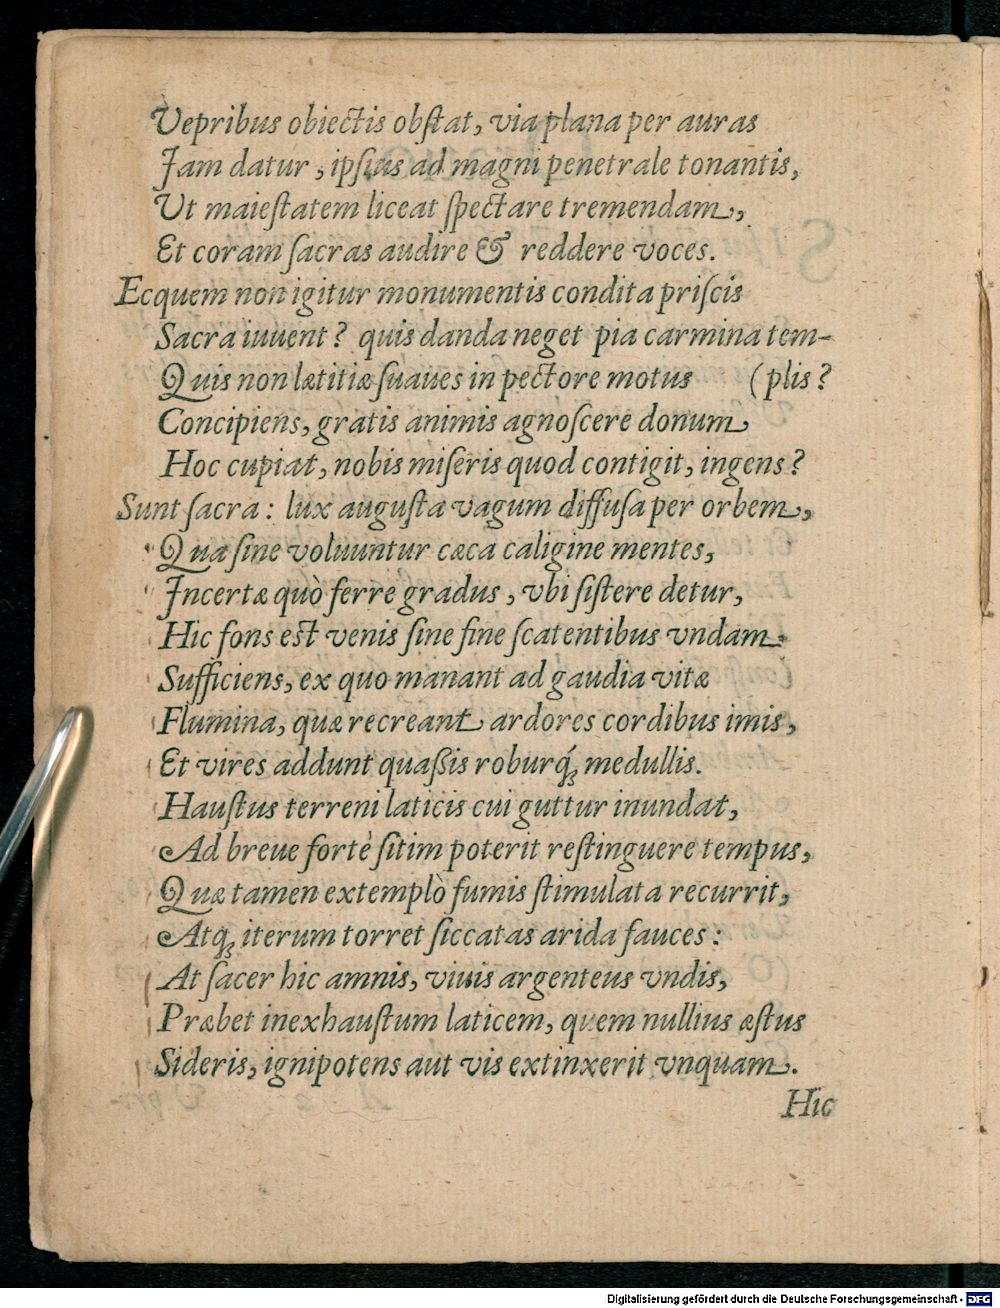 Vepribus obiectis obſtat, via plana per auras
Jam datur, ipſius ad magni penetrale tonantis,
Ut maieſtatem liceat ſpectare tremendam,
Et coram ſacras audire & reddere voces.
Ecquem non igitur monumentis condita priſcis
Sacra iuuent? quis danda neget pia carmina tem-
Quis non lætitiæ ſuaues in pectore motus (plis?
Concipiens, gratis animis agnoſcere donum
Hoc cupiat, nobis miſeris quod contigit, ingens?
Sunt ſacra: lux auguſta vagum diffuſa per orbem,
Qua ſine voluuntur cæca caligine mentes,
Jncertæ quò ferre gradus, vbi ſiſtere detur,
Hic fons eſt venis ſine fine ſcatentibus vndam
Sufficiens, ex quo manant ad gaudia vitæ
Flumina, quæ recreant ardores cordibus imis,
Et vires addunt quaßis roburq́ꝫ medullis.
Hauſtus terreni laticis cui guttur inundat,
Ad breue fortè ſitim poterit reſtinguere tempus,
Quæ tamen extemplò fumis ſtimulata recurrit,
Atqꝫ iterum torret ſiccatas arida fauces:
At ſacer hic amnis, viuis argenteus vndis,
Præbet inexhauſtum laticem, quem nullius æſtus
Sideris, ignipotens aut vis extinxerit vnquam.
Hic
Digitalisierung gefördert durch die Deutsche Forschungsgemeinschaft - DFG